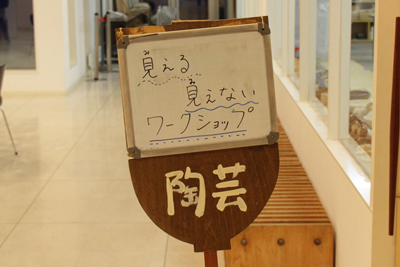 覚える
覚えない
ワークショップ
陶芸